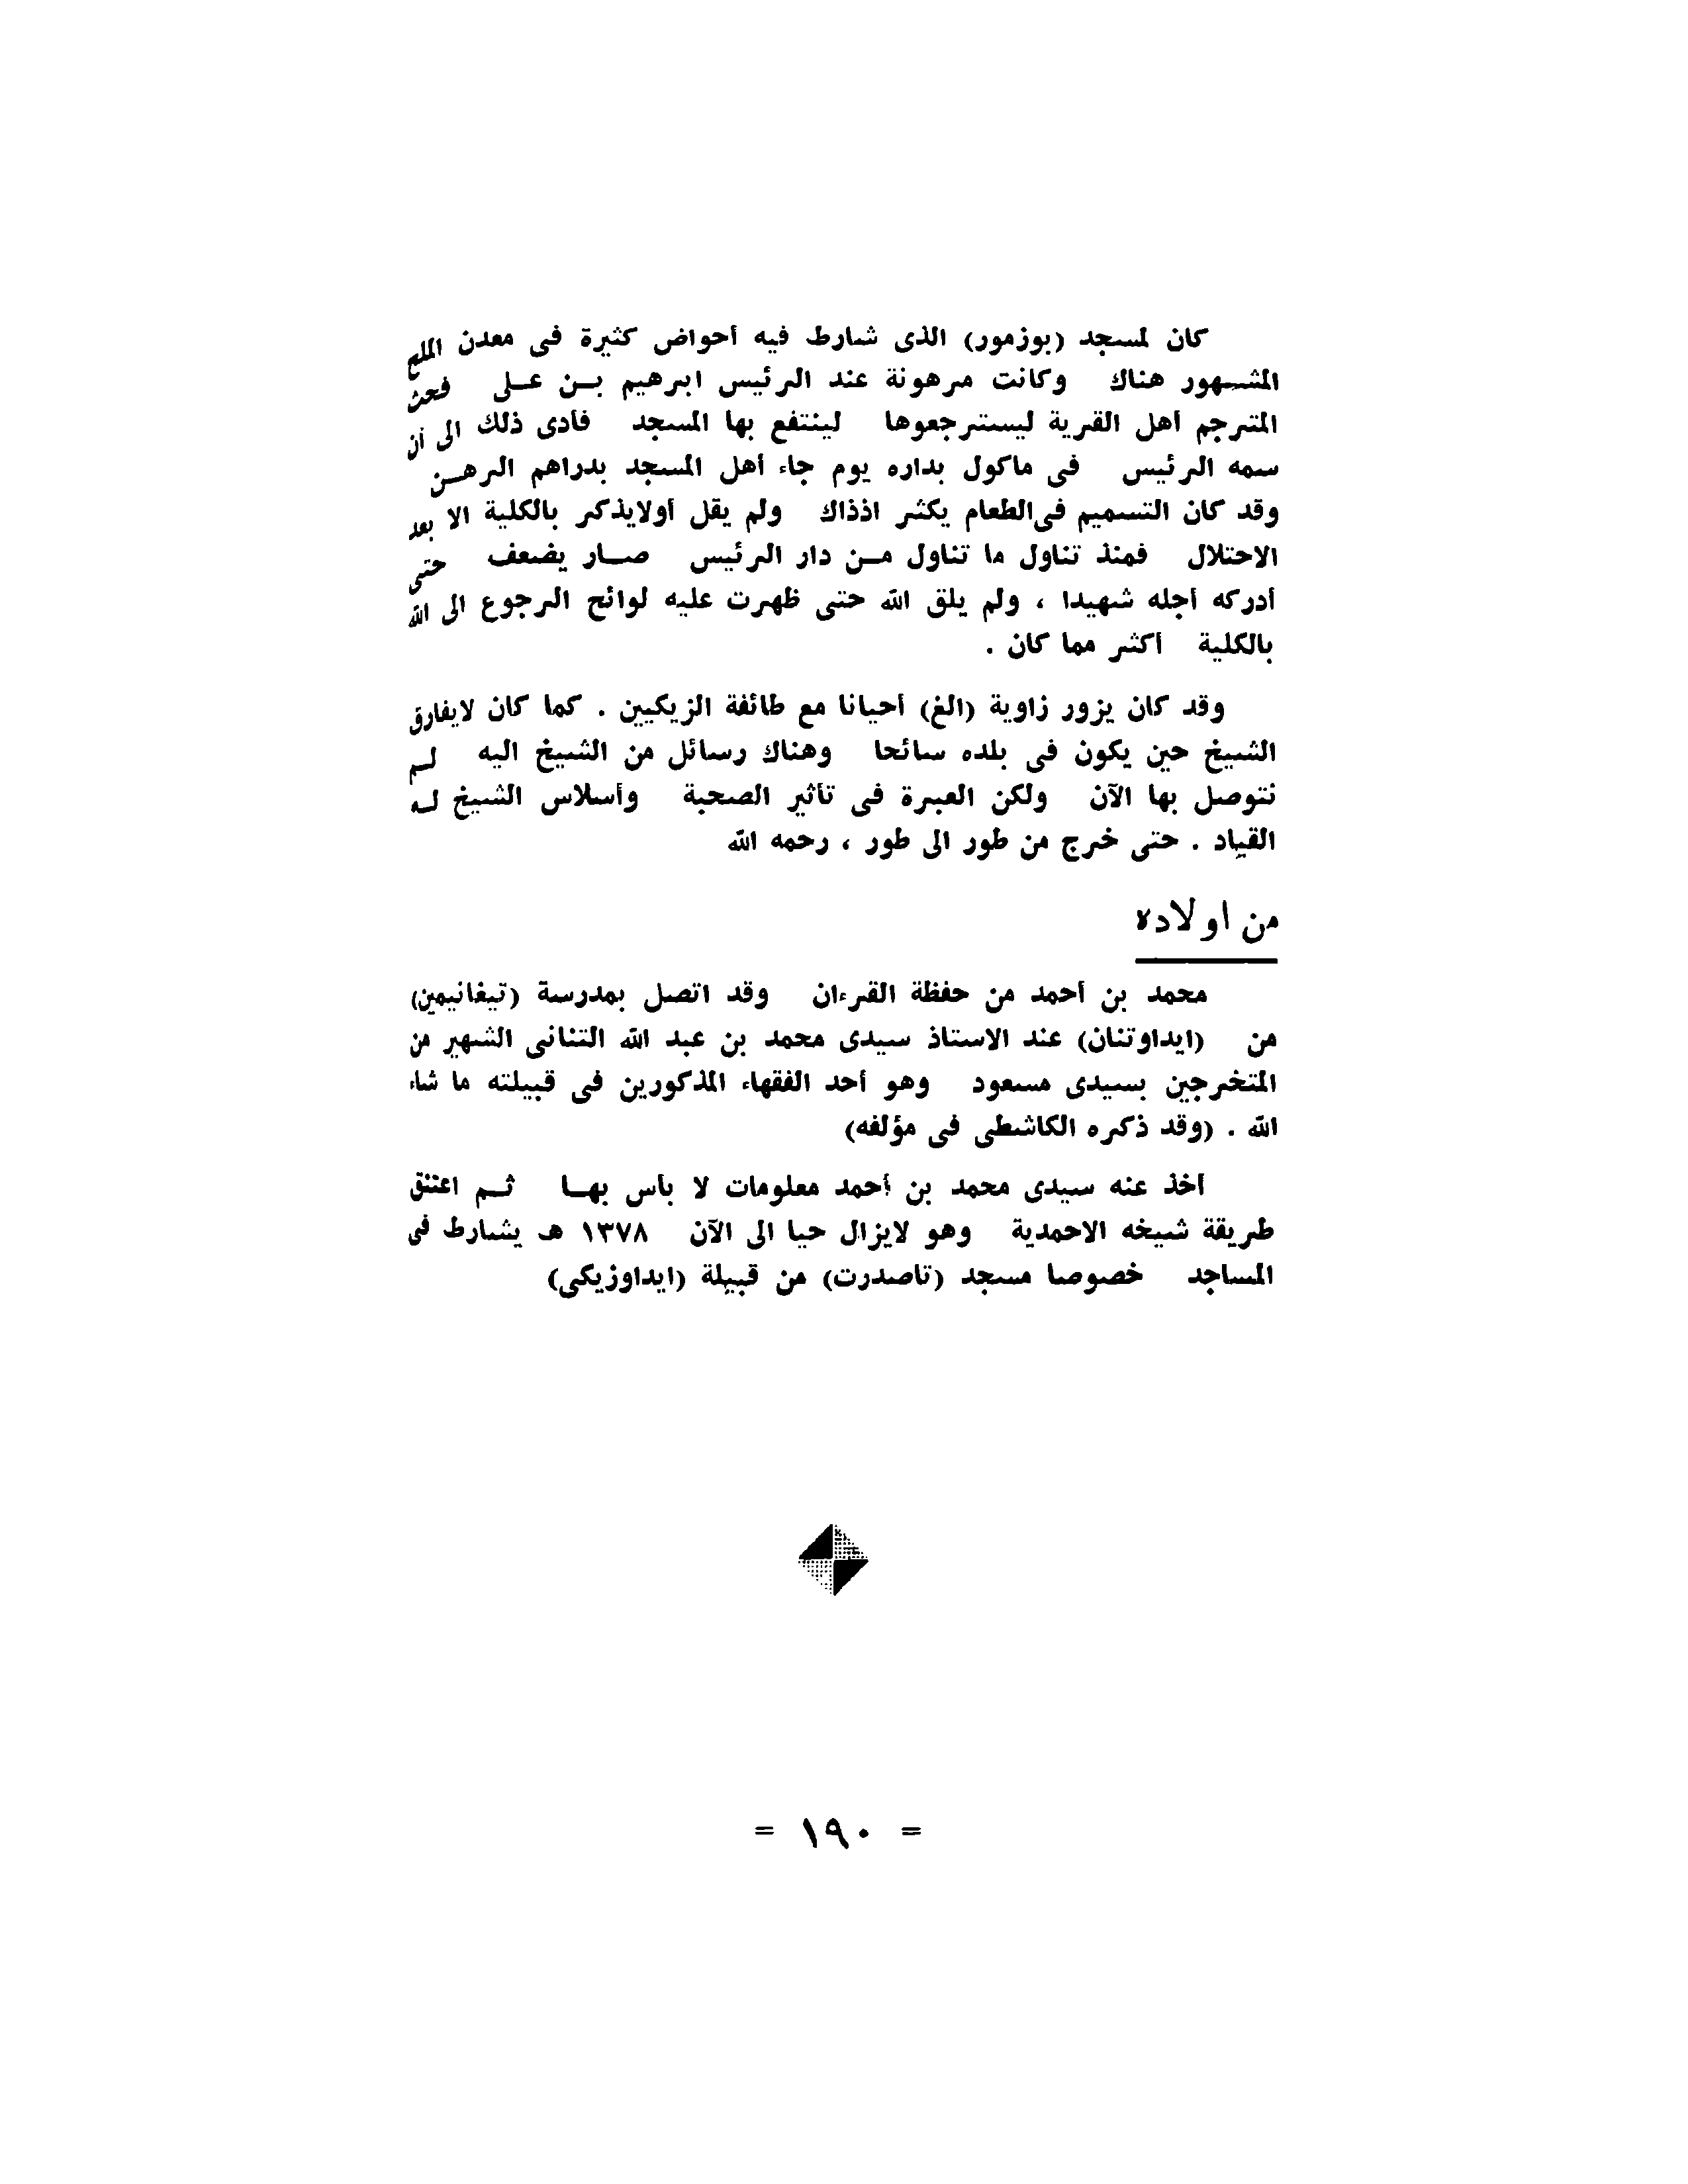 كان لمسجد (بوزمور) الذى شارط فيه أحواض كثيرة فى معدن الملح
المشهور هناك وكانت مرهونة عند الرئيس ابرهيم بن على فحث
المترجم أهل القرية ليسترجعوها لينتفع بها المسجد فأدى ذلك الى أن
سمه الرئيس فى ماكول بداره يوم جاء أهل المسجد بدراهم الرهن
وقد كان التسميم فى الطعام يكثر اذذاك ولم يقل أولايذكر بالكلية الا بعد
الاحتلال فمنذ تناول ما تناول من دار الرئيس صار يضعف حتى
أدركه أجله شهيدا ، ولم يلق الله حتى ظهرت عليه لوائح الرجوع الى الله
بالكلية أكثر مما كان .
وقد كان يزور زاوية (الغ) أحيانا مع طائفة الزيكيين . كما كان لايفارق
الشيخ حين يكون فى بلده سائحا وهناك رسائل من الشيخ اليه لم
نتوصل بها الآن ولكن العبرة فى تأثير الصحبة وأسلاس الشيخ له
القياد . حتى خرج من طور الى طور ، رحمه الله
من اولاده
محمد بن أحمد من حفظة القرءان وقد اتصل بمدرسة (تيغانيمين)
من (ايداوتنان) عند الاستاذ سيدى محمد بن عبد الله التنانى الشهير من
المتخرجين بسيدى مسعود وهو أحد الفقهاء المذكورين فى قبيلته ما شاء
الله . (وقد ذكره الكاشطى فى مؤلفه)
أخذ عنه سيدى محمد بن أحمد معلومات لا بأس بها ثم اعتنق
طريقة شيخه الاحمدية وهو لايزال حيا الى الآن ١٣٧٨ هـ يشارط فى
المساجد خصوصا مسجد (تاصدرت) من قبيلة (ايداوزيكى)
= ١٩٠ =